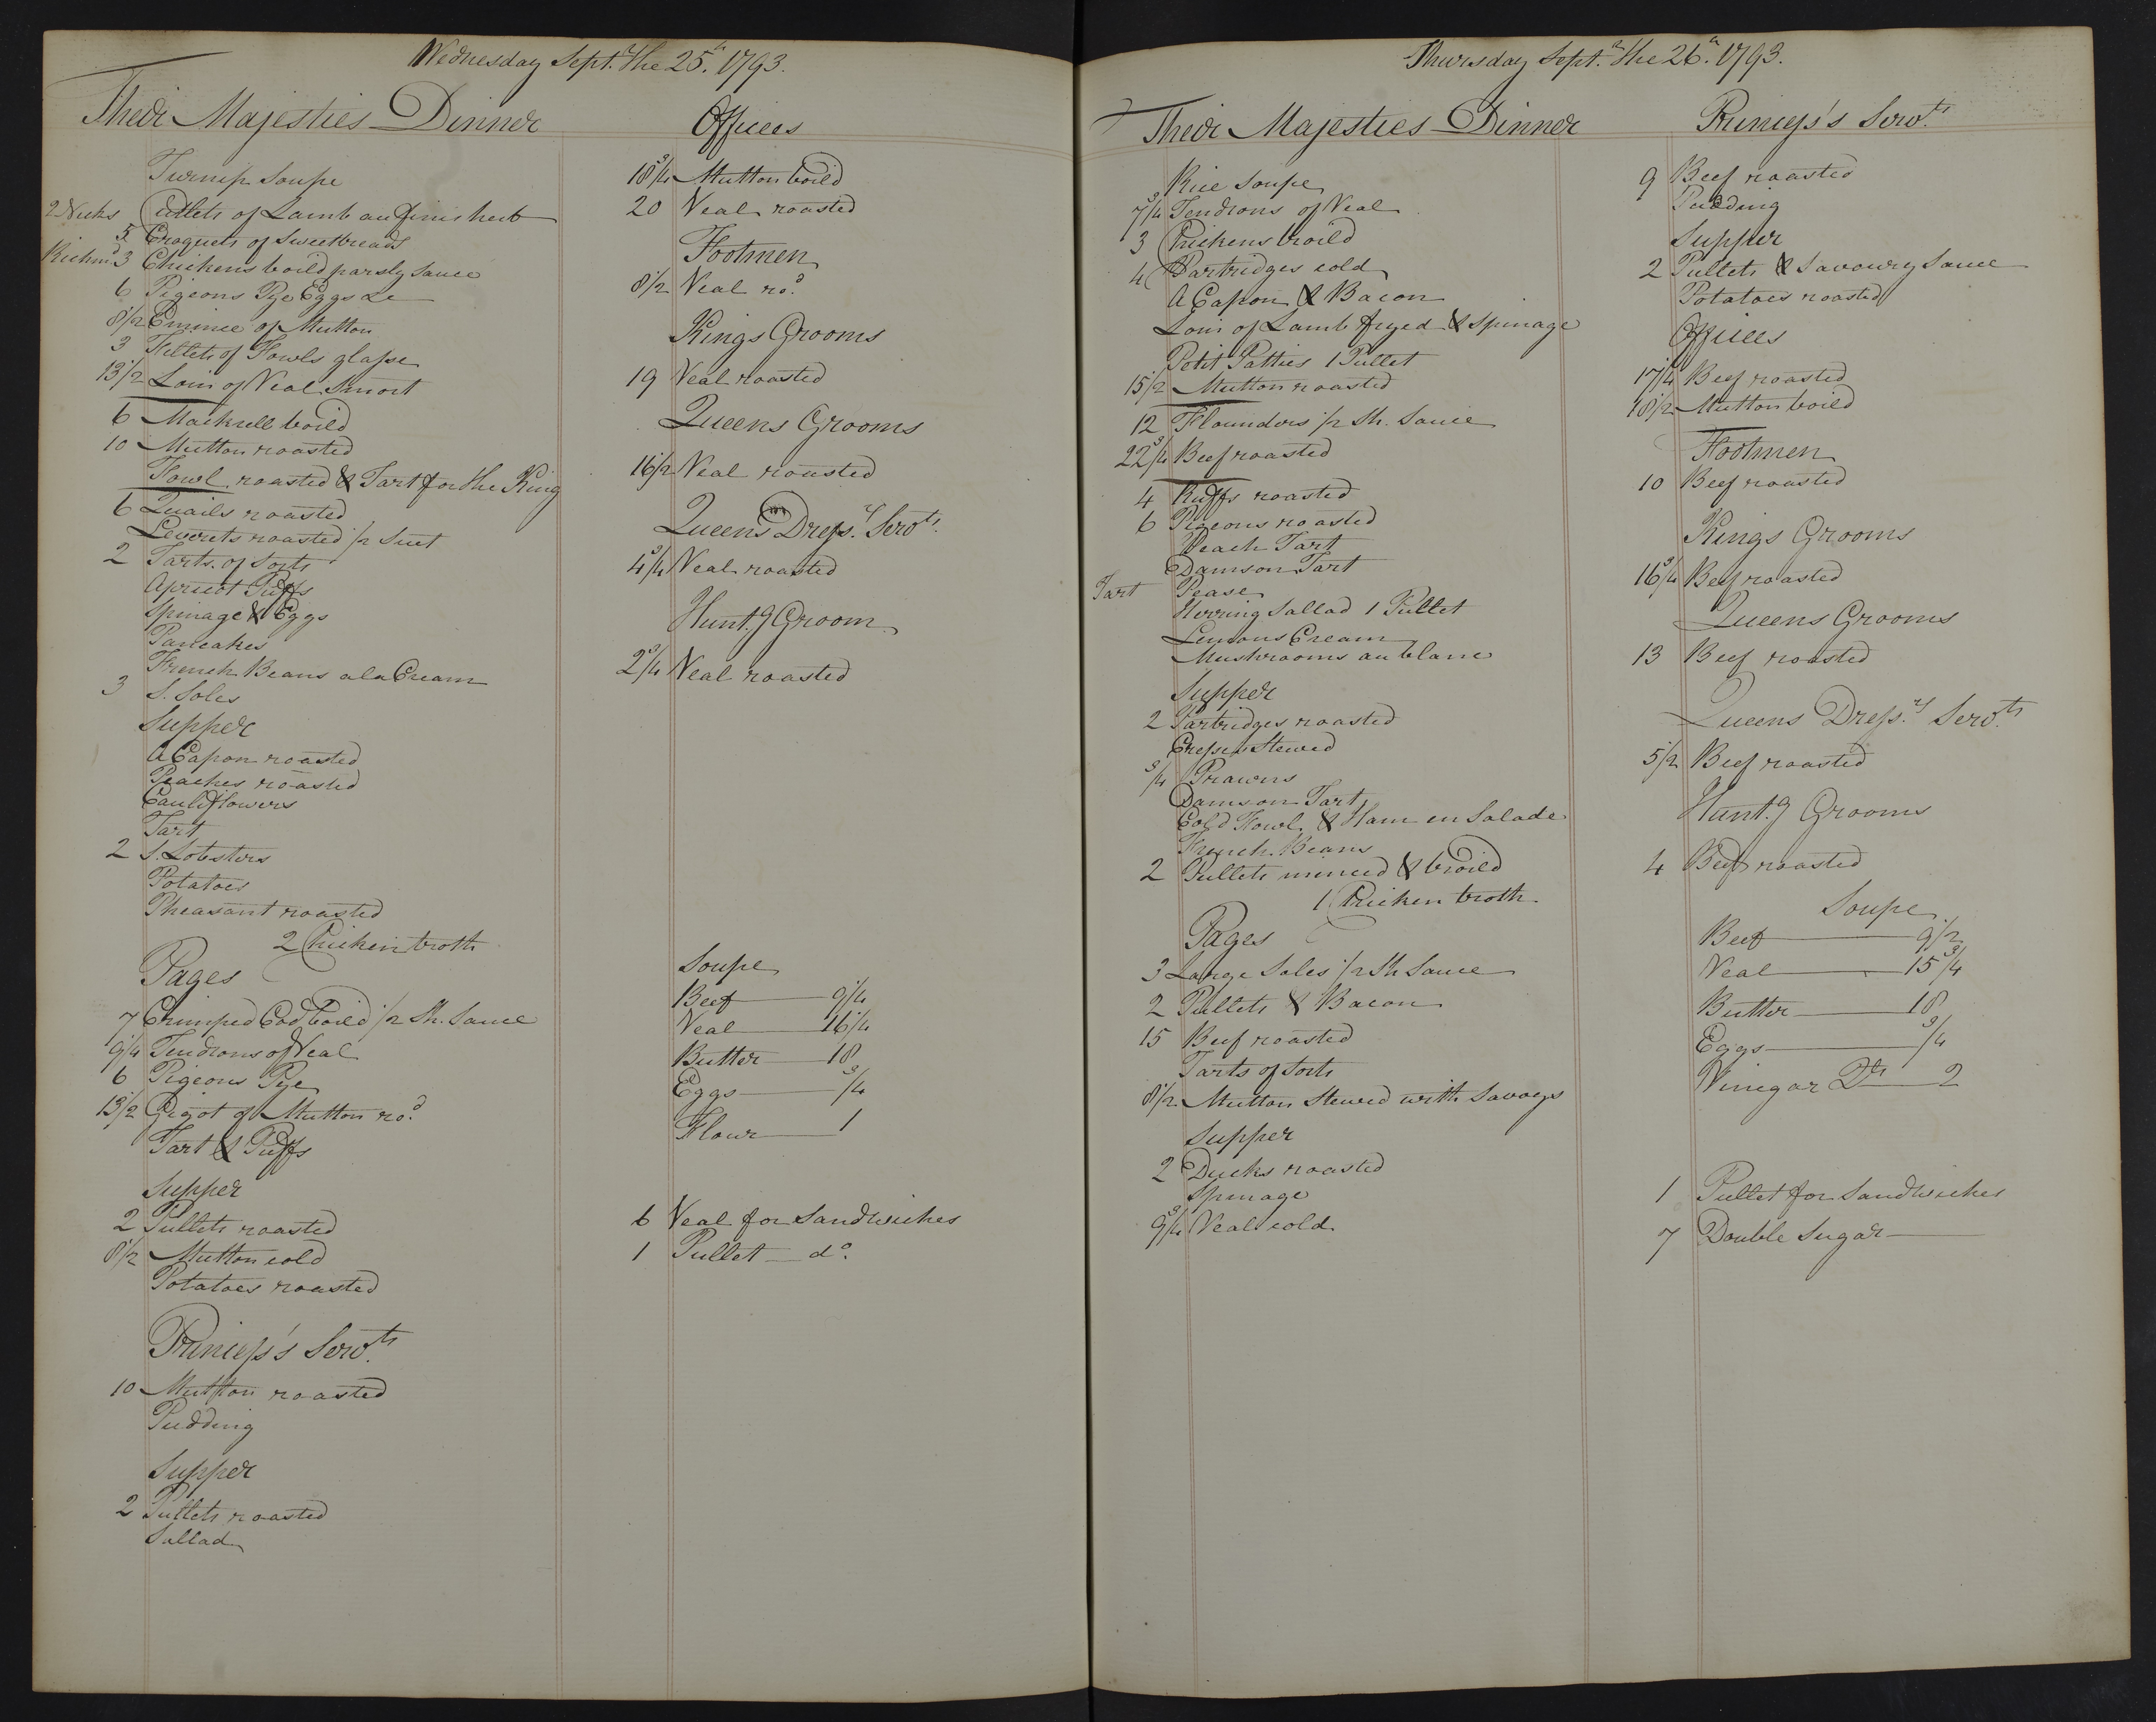 Wednesday Sept.r the 25.th 1793.
Their Majesties Dinner
Turnip Soupe
2 Necks Cutlets of Lamb au finis herb
5 Croquets of Sweetbreads
Richm.d 3 Chickens boild parsly Sauce
6 Pigeons Pye Eggs &c
8 1/2 Emince of Mutton
3 Fillets of Fowls glasse
13 1/2 Loin of Veal Smort
6 Mackrell boild
10 Mutton roasted
Fowl roasted & Tart for the King
6 Quails roasted
Leverets roasted 1/2 Suet
2 Tarts of Sorts
Apricot Puffs
Spinage & Eggs
Pancakes
French Beans a la Cream
3 S. Soles
Supper
A Capon roasted
Peaches roasted
Cauliflowers
Tart
2 S. Lobsters
Potatoes
Pheasant roasted
2 Chicken broth
Pages
7 Crimped Cod boild 1/2 Sh. Sauce
9 1/4 Tendrons of Veal
6 Pigeons Pye
13 1/2 Gigot of Mutton ro.d
Tart & Puffs
Supper
2 Pullets roasted
8 1/2 Mutton cold
Potatoes roasted
Princess's Serv.ts
10 Mutton roasted
Pudding
Supper
2 Pullets roasted
Sallad
Offices
18 3/4 Mutton boild
20 Veal roasted
Footmen
8 1/2 Veal ro.d
Kings Grooms
19 Veal roasted
Queens Grooms
16 1/2 Veal roasted
Queens Dress.rs Serv.ts
4 3/4 Veal roasted
Hunt.g Groom
2 3/4 Veal roasted
Soupe
Beef 9 1/4
Veal 16 1/4
Butter 18
Eggs 3/4
Flour 1
6 Veal for Sandwiches
1 Pullet d.o
Thursday Sept.r the 26.th 1793.
Their Majesties Dinner
Rice Soupe
7 3/4 Tendrons of Veal
3 Chickens broild
4 Partridges cold
A Capon & Bacon
Loin of Lamb fryed & Spinage
Petit Patties 1 Pullet
15 1/2 Mutton roasted
12 Flounders 1/2 Sh. Sauce
22 3/4 Beef roasted
4 Ruffs roasted
6 Pigeons roasted
Peach Tart
Damson Tart
Tart Pease
Herring Sallad 1 Pullet
Lemons Cream
Mushrooms au blanc
Supper
2 Partridges roasted
Cresses Stewed
3/4 Prawns
Damson Tart
Cold Fowl & Ham en Salade
French Beans
2 Pullets minced & broild
1 Chicken broth
Pages
3 Large Soles 1/2 Sh Sauce
2 Pullets & Bacon
15 Beef roasted
Tarts of Sorts
8 1/2 Mutton Stewed with Savoys
Supper
2 Ducks roasted
Spinage
9 3/4 Veal cold
Princess's Serv.ts
9 Beef roasted
Pudding
Supper
2 Pullets & Savoury Sauce
Potatoes roasted
Offices
17 1/4 Beef roasted
18 1/2 Mutton boild
Footmen
10 Beef roasted
Kings Grooms
16 3/4 Beef roasted
Queens Grooms
13 Beef roasted
Queens Dress.rs Serv.ts
5 1/2 Beef roasted
Hunt.g Grooms
4 Beef roasted
Soupe
Beef 9 1/2
Veal 15 3/4
Butter 18
Eggs 3/4
Vinegar D.ts 2
1 Pullet for Sandwiches
7 Double Sugar